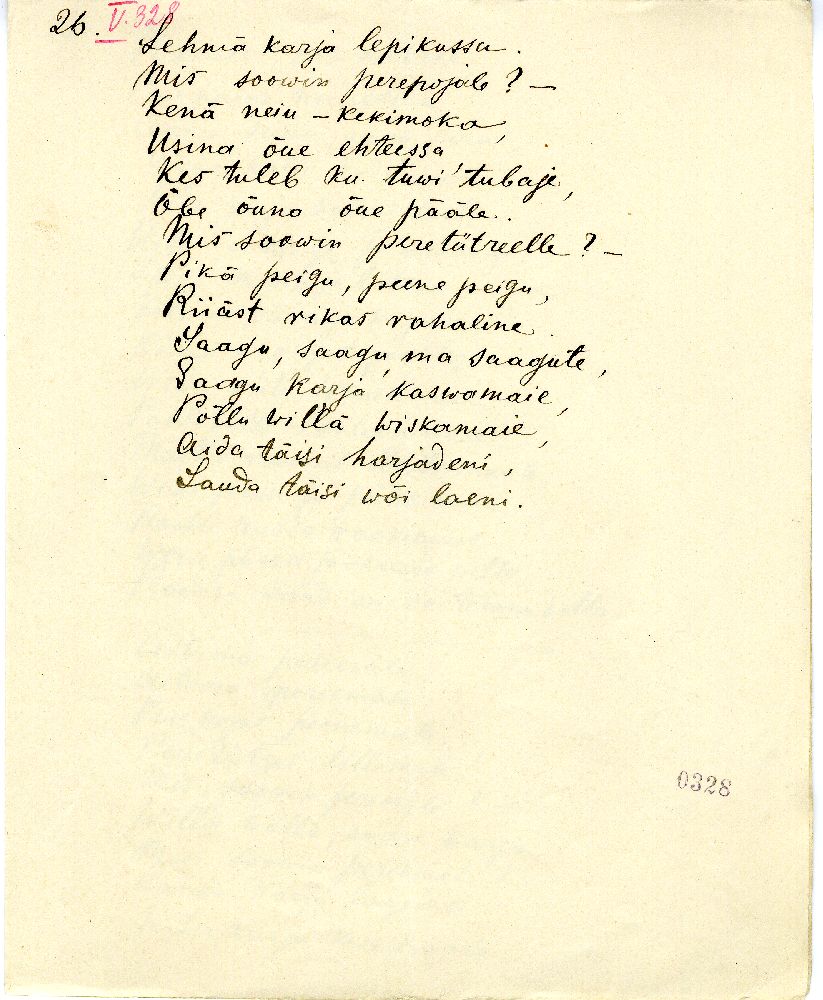 26. V. 328
Lehmä karja lepikussu.
Mis soowin perepojale? —
Kenä neiu – kekimoka,
Usina õue ehteessa,
Kes tuleb ku tuwi' tubaje,
Õbe õuna õue pääle..
Mis soowin peretütreelle? —
Pikä peigu, peene peigu,
Riiäst rikas rahaline.
Saagu, saagu, ma saagute,
Saagu karja kaswamaie,
Põllu willä wiskamaie,
Aida täisi harjadeni,
Lauda täisi wõi laeni.
0328